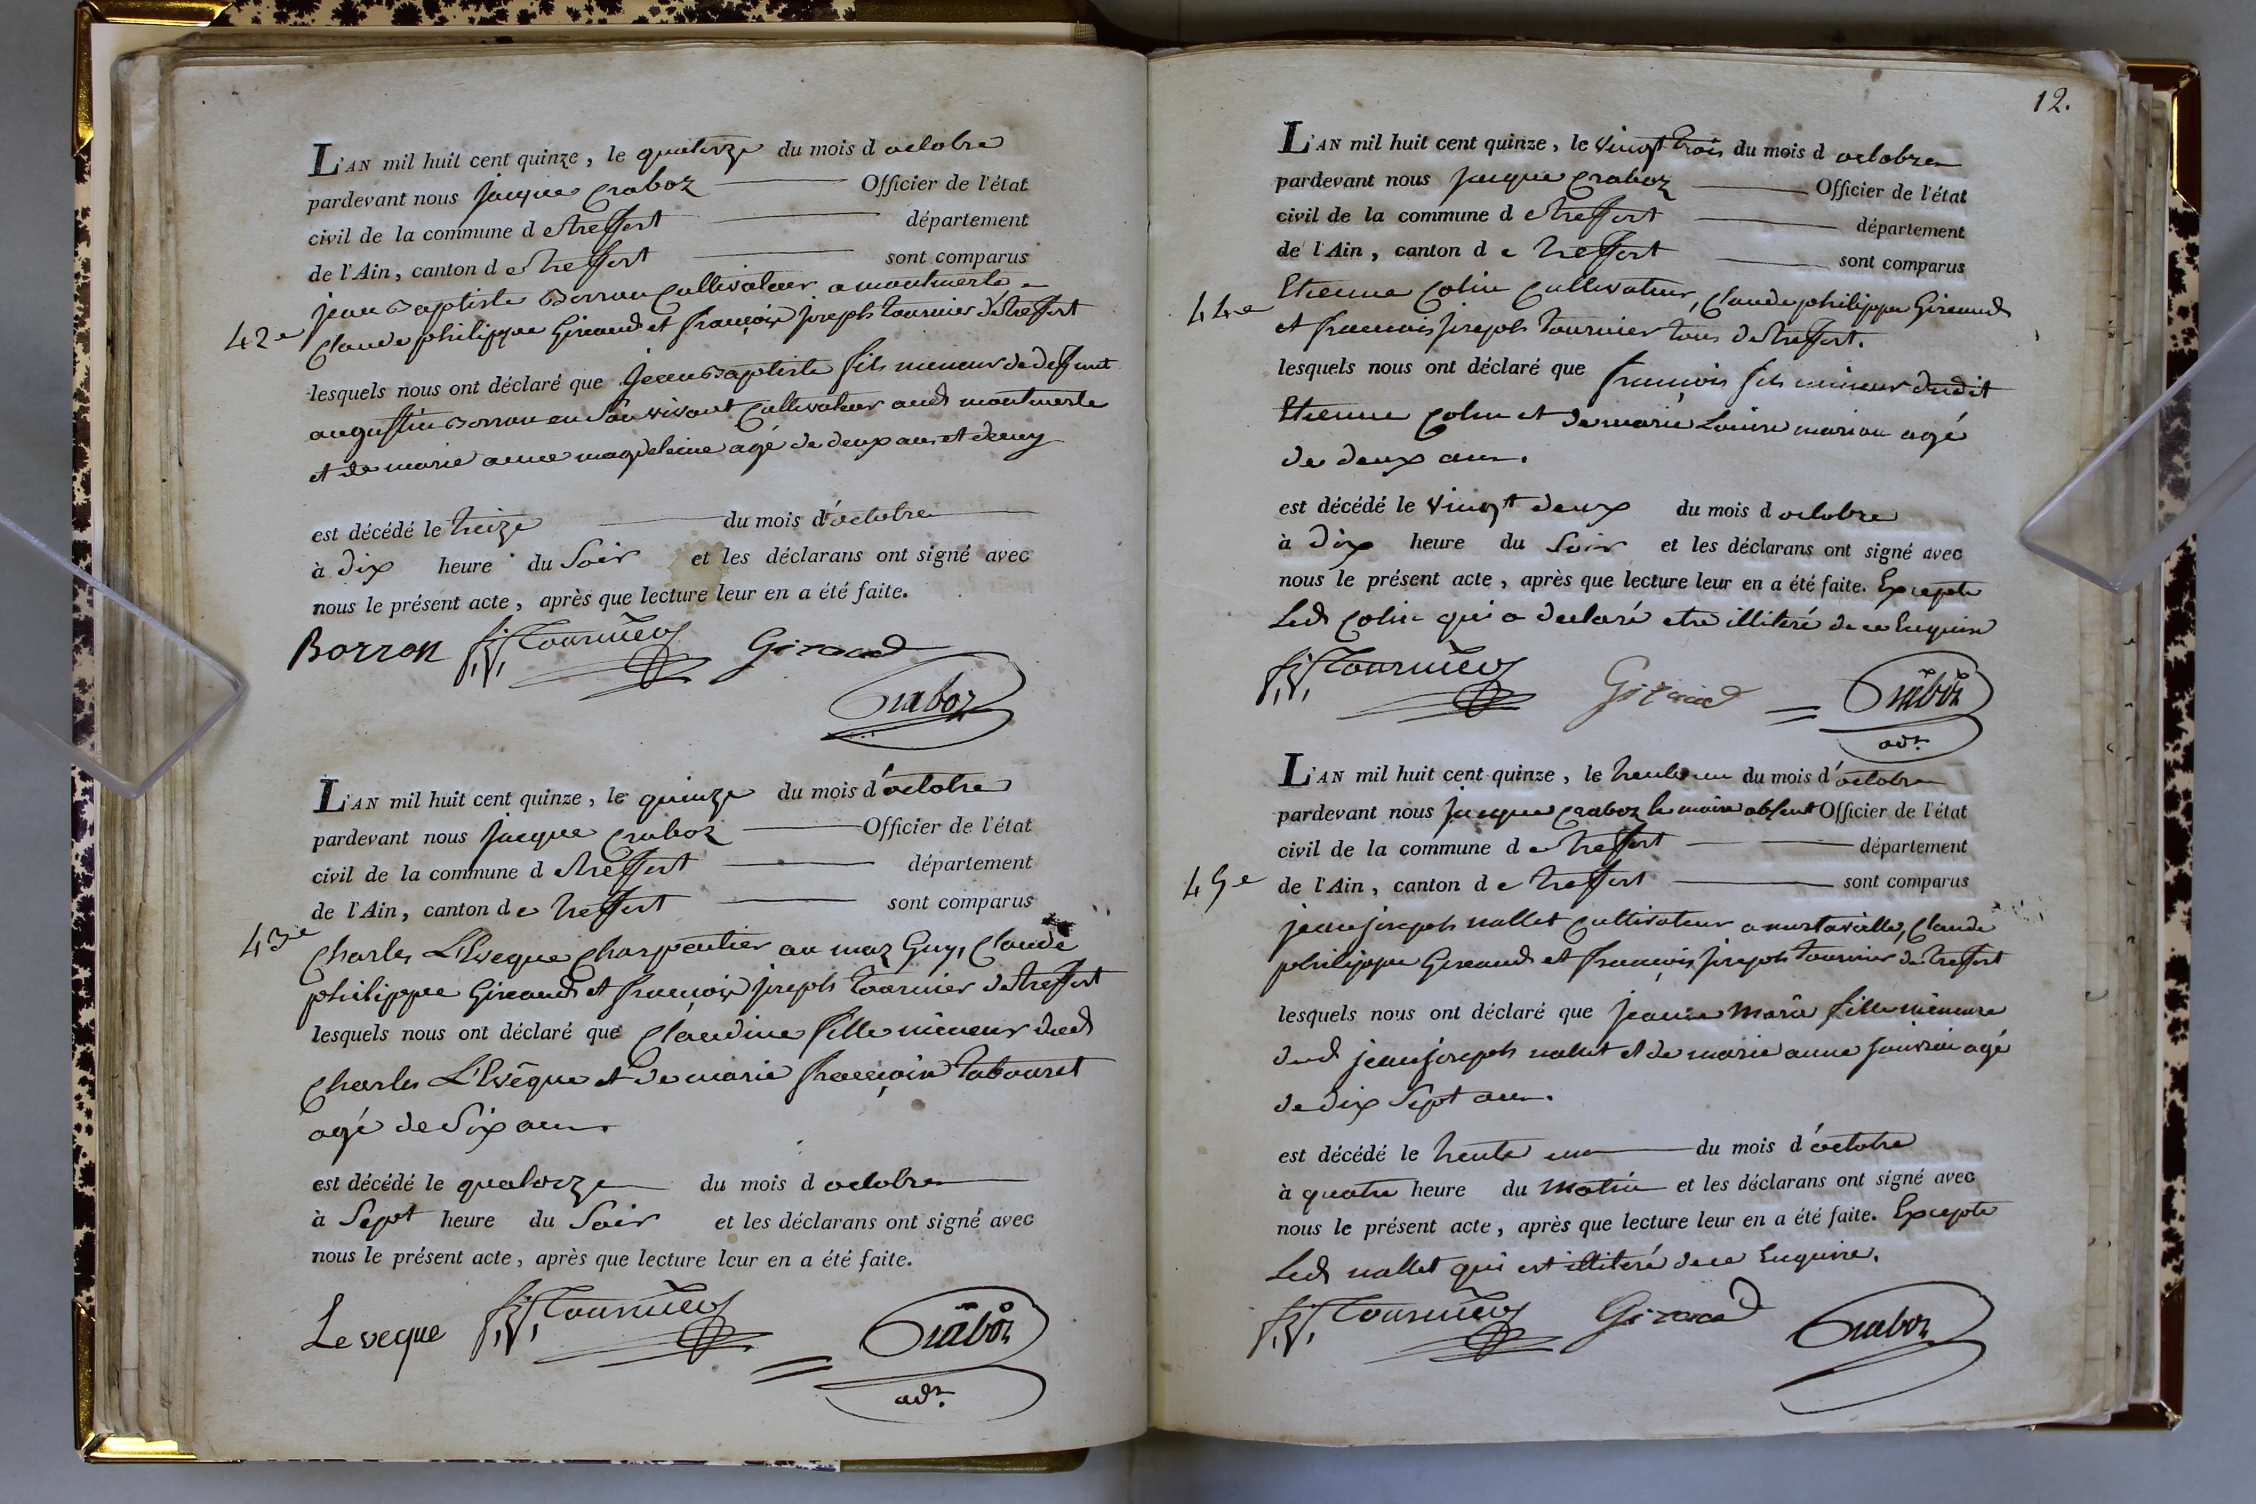 L'AN mil huit cent quinze, le quatorze du mois d octobre
pardevant nous jacque Craboz Officier de l'état
civil de la commune d e treffort département
de l'Ain, canton d e treffort sont comparus
jean Baptiste Borron Cultivateur a montmerle
42e
Claude philippe Giraud et françois joseph tournier de treffort
lesquels nous ont déclaré que jean Baptiste fils mineur de deffunt
augustin Borron en son vivant Cultivateur aud montmerle
et de marie anne magdeleine agé de deux ans et demy
est décédé le treize du mois d'octobre
à dix heure du Soir et les déclarans ont signé avec
nous le présent acte, après que lecture leur en a été faite.
Borron f. j. Tournier Giraud
Craboz
L'AN mil huit cent quinze, le quinze du mois d'octobre
pardevant nous jacque Craboz Officier de l'état
civil de la commune d e treffort département
de l'Ain, canton d e treffort sont comparus
43e
Charles L'Eveque Charpentier au maz Guy, Claude
philippe Giraud et françois joseph tournier de treffort
lesquels nous ont déclaré que Claudine fille mineur dud
Charles L'Evêque et de marie françoise tabouret
agé de Six ans
est décédé le quatorze du mois d octobre
à Sept heure du Soir et les déclarans ont signé avec
nous le présent acte, après que lecture leur en a été faite.
Leveque f. j. Tournier Craboz
adt.
12.
L'AN mil huit cent quinze, le vingt trois du mois d octobre
pardevant nous jacque Craboz Officier de l'état
civil de la commune d e treffort département
de l'Ain, canton d e treffort sont comparus
44e
Etienne Colin Cultivateur, Claude philippe Giraud
et francois joseph tournier tous de treffort.
lesquels nous ont déclaré que francois fils mineur dudit
Etienne Colin et de marie Louise marion agé
de deux ans.
est décédé le vingt deux du mois d octobre
à dix heure du Soir et les déclarans ont signé avec
nous le présent acte, après que lecture leur en a été faite. Excepte
Led Colin qui a declaré etre illiteré de ce Enquire
f. j. Tournier Giraud Craboz
adt.
L'AN mil huit cent quinze, le trente un du mois d'octobre
pardevant nous jacque Craboz le maire absent Officier de l'état
civil de la commune d e treffort département
45e
de l'Ain, canton d e treffort sont comparus
jean joseph nallet Cultivateur a , Claude
philippe Giraud et françois joseph tournier de treffort
lesquels nous ont déclaré que jeanne Marie fille mineure
dud jean joseph nallet et de marie anne agé
de dix Sept ans.
est décédé le trente un du mois d'octobre
à quatre heure du Matin et les déclarans ont signé avec
nous le présent acte, après que lecture leur en a été faite. Excepte
Led nallet qui est illiteré de ce Enquire.
f. j. Tournier Giraud Craboz